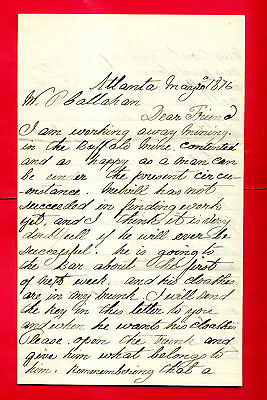 Atlanta May 20th 1876
W. P. Callahan
Dear Friend
I am working away mining
in the Buffalo Mine, contented
and as happy as a man can
be under the present circu-
mstance. has not
succeeded in finding work
yet, and I think it is very
 if he will ever be
successful. he is going to
the Bar about the first
of next week. and his cloathes
are in my trunk I will send
the key in this letter to you
and when he wants his cloathes
Please open the trunk and
give him what belongs to
him. Rememembering that a